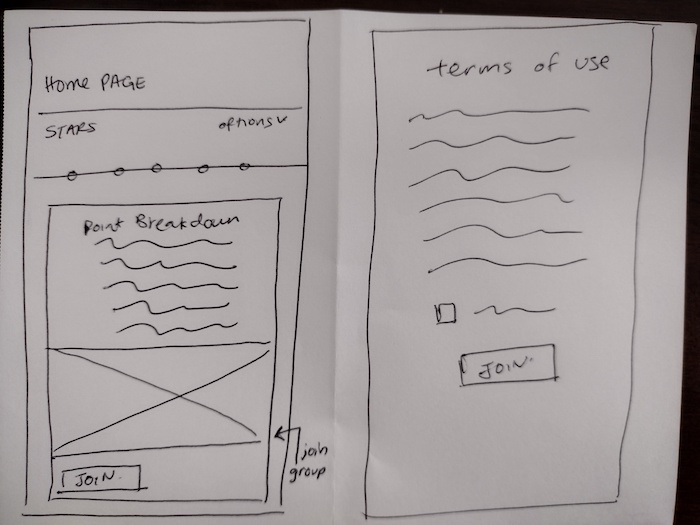 Home PAGE
STARS
options
Point Breakdown
JOIN.
join
group
terms of use
JOIN.